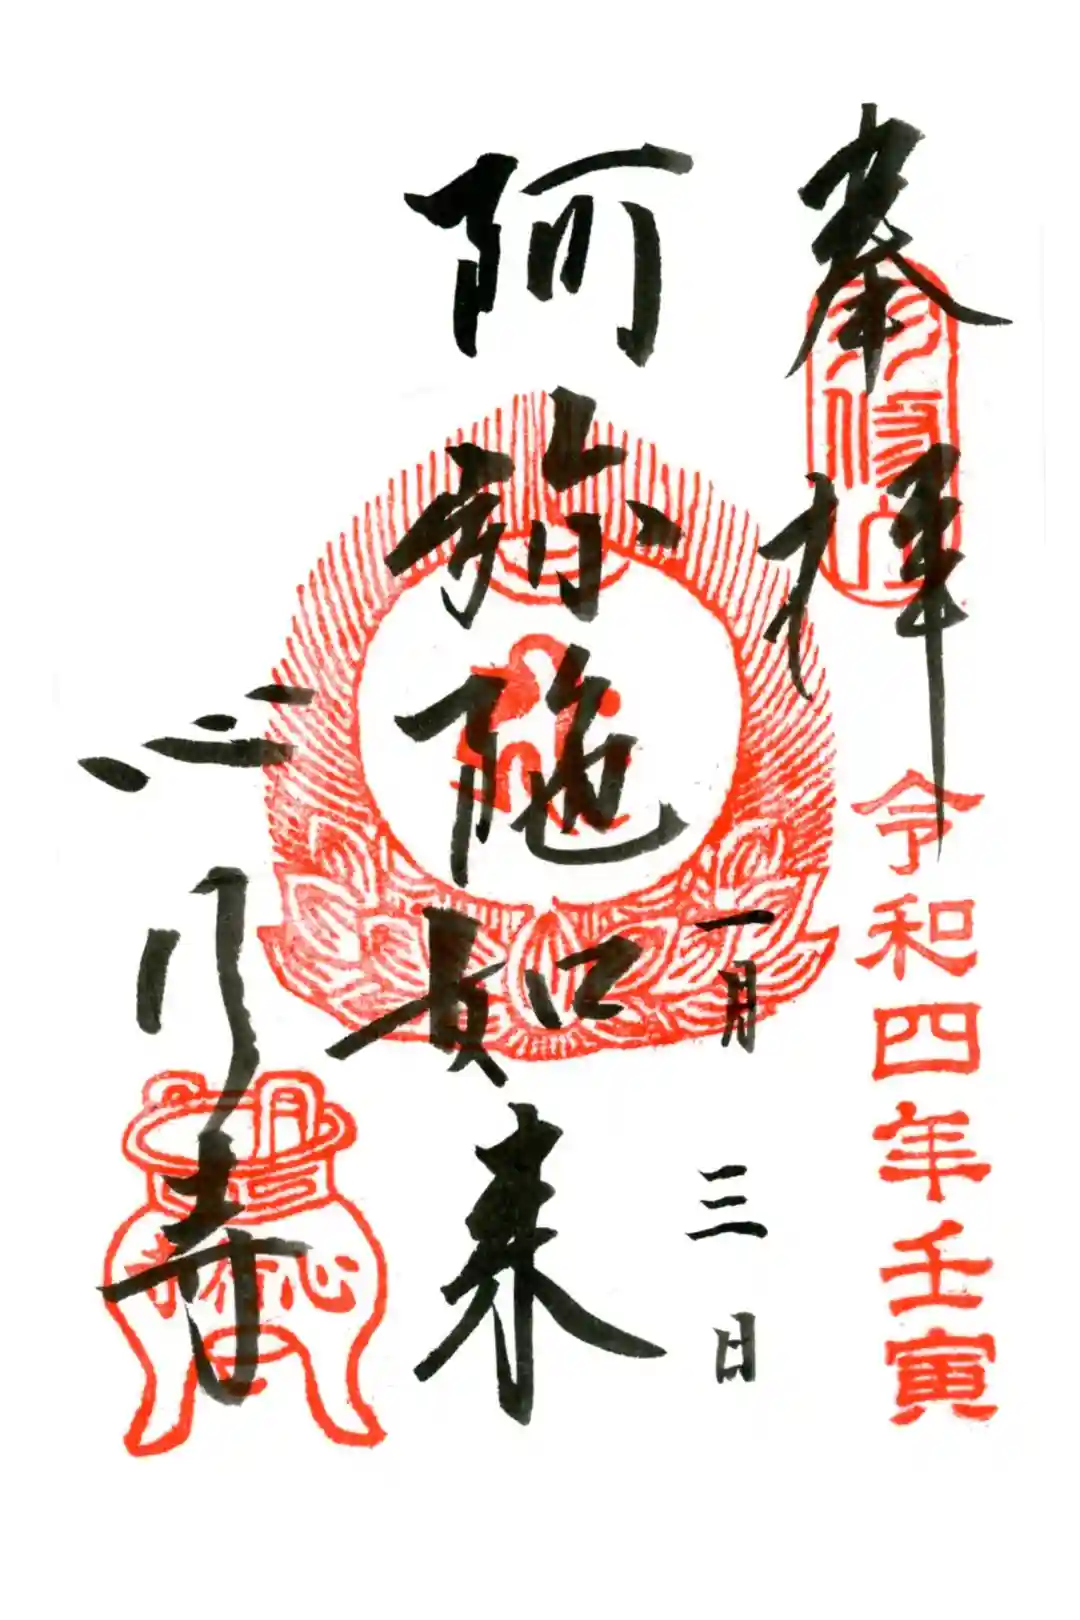 奉拝
令和四年壬寅
一月三日
阿弥陀如来
心行寺
心行寺